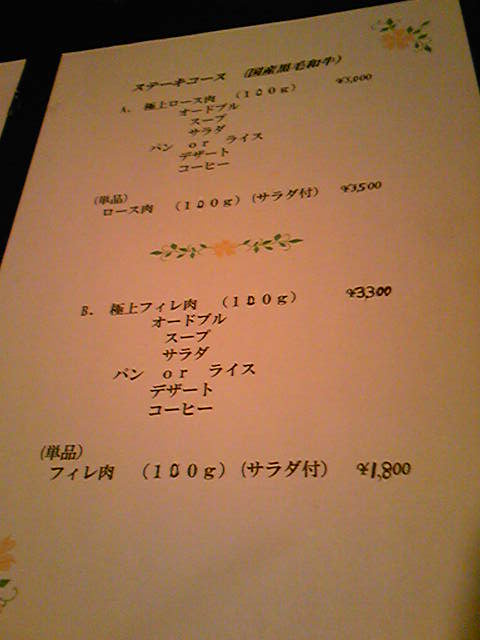 ステーキコース （国産黒毛和牛）
A. 極上ロース肉 （100g） ¥5,000
オードブル
スープ
サラダ
パン or ライス
デザート
コーヒー
(単品)
ロース肉 （100g）(サラダ付) ¥3,500
B. 極上フィレ肉 （100g） ¥3,300
オードブル
スープ
サラダ
パン or ライス
デザート
コーヒー
(単品)
フィレ肉 （100g）(サラダ付) ¥1,800